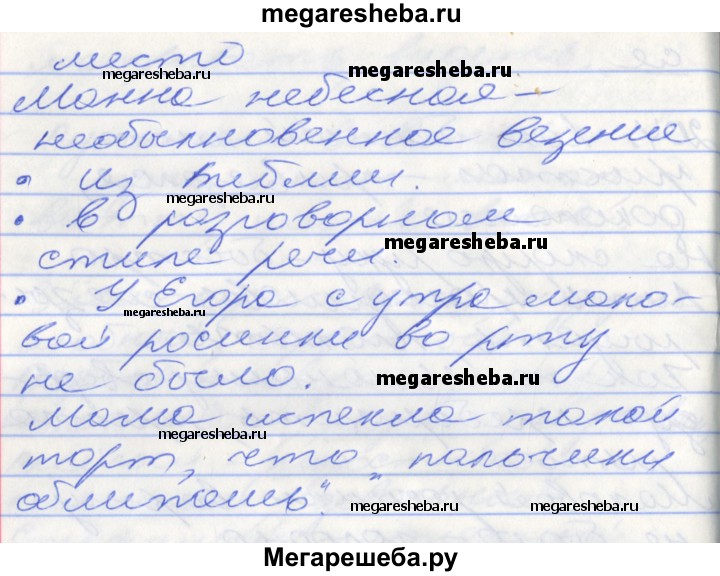 megaresheba.ru
место
megaresheba.ru
megaresheba.ru
Манна небесная –
megaresheba.ru
необыкновенное везение
• из Библии.
megaresheba.ru
• в разговорном
стиле речи.
megaresheba.ru
• У Егора с утра мако-
megaresheba.ru
вой росинки во рту
не было.
megaresheba.ru
Мама испекла такой
megaresheba.ru
торт, что "пальчики
оближешь".
megaresheba.ru
Мегарешеба.ру